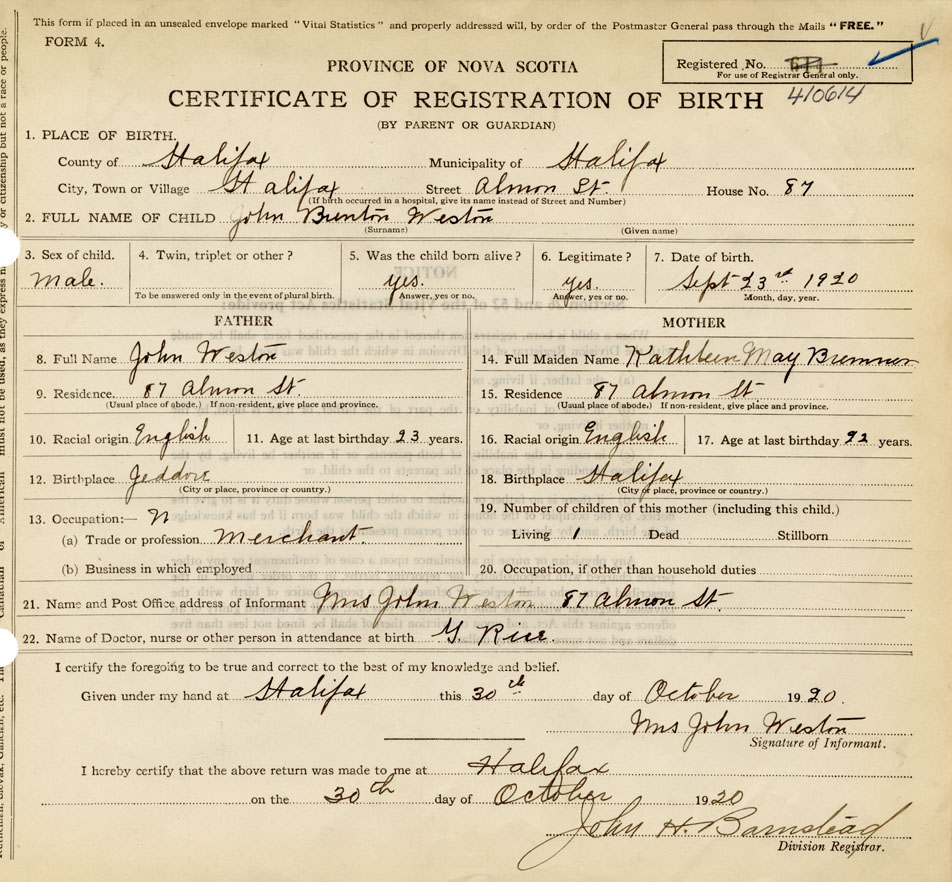 This form if placed in an unsealed envelope marked "Vital Statistics" and properly addressed will, by order of the Postmaster General pass through the Mails "FREE."
FORM 4.
Registered No.
For use of Registrar General only.
410614
PROVINCE OF NOVA SCOTIA
CERTIFICATE OF REGISTRATION OF BIRTH
(BY PARENT OR GUARDIAN)
1. PLACE OF BIRTH.
County of Halifax Municipality of Halifax
City, Town or Village Halifax Street Almon St. House No. 87
(If birth occurred in a hospital, give its name instead of Street and Number)
2. FULL NAME OF CHILD John Brenton Weston
(Surname) (Given name)
3. Sex of child. 4. Twin, triplet or other? 5. Was the child born alive? 6. Legitimate? 7. Date of birth.
Male. yes. yes. Sept 23rd 1920
To be answered only in the event of plural birth. Answer, yes or no. Answer, yes or no. Month, day, year.
FATHER MOTHER
8. Full Name John Weston 14. Full Maiden Name Kathleen May
9. Residence 87 Almon St. 15. Residence 87 Almon St
(Usual place of abode.) If non-resident, give place and province. (Usual place of abode.) If non-resident, give place and province.
10. Racial origin English 11. Age at last birthday 23 years. 16. Racial origin English 17. Age at last birthday 22 years.
12. Birthplace Jeddore 18. Birthplace Halifax
(City or place, province or country.) (City or place, province or country.)
13. Occupation:—
19. Number of children of this mother (including this child.)
(a) Trade or profession Merchant. Living 1 Dead Stillborn
(b) Business in which employed 20. Occupation, if other than household duties
21. Name and Post Office address of Informant Mrs John Weston 87 Almon St.
22. Name of Doctor, nurse or other person in attendance at birth G. Rice.
I certify the foregoing to be true and correct to the best of my knowledge and belief.
Given under my hand at Halifax this 30th day of October 1920.
Mrs John Weston
Signature of Informant.
I hereby certify that the above return was made to me at Halifax
on the 30th day of October 1920
John H. Barnstead
Division Registrar.